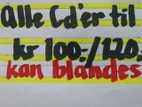 Alle Cd'er til
kr 100:/120:
kan blandes